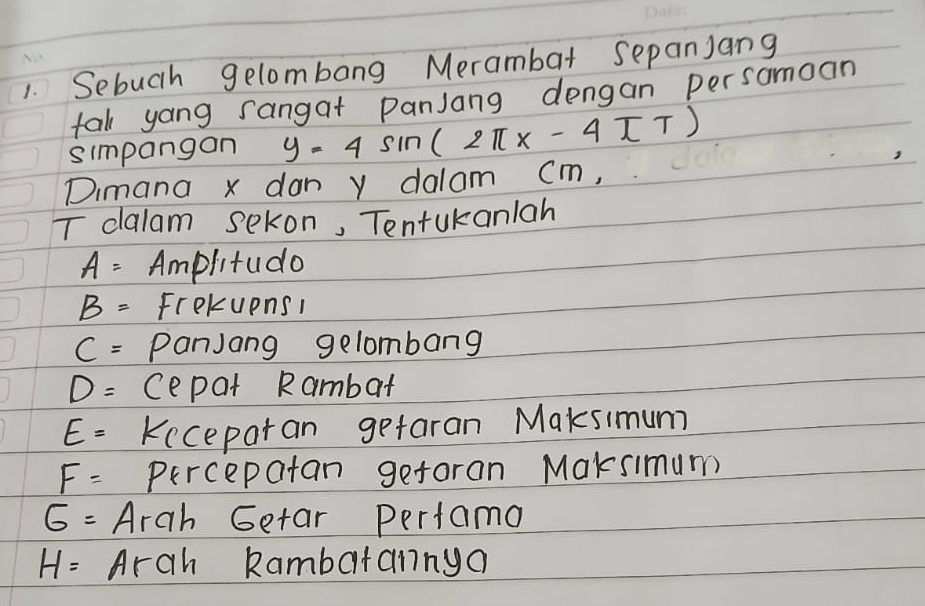 No.
Date:
1. Sebuah gelombang Merambat sepanjang
tali yang sangat Panjang dengan persamaan
simpangan y = 4 sin ( 2πx - 4πT )
Dimana x dan y dalam cm, ,
T dalam sekon, Tentukanlah
A = Amplitudo
B = Frekuensi
C = Panjang gelombang
D = Cepat Rambat
E = Kecepatan getaran Maksimum
F = Percepatan getaran Maksimum
G = Arah Getar Pertama
H = Arah Rambatannya